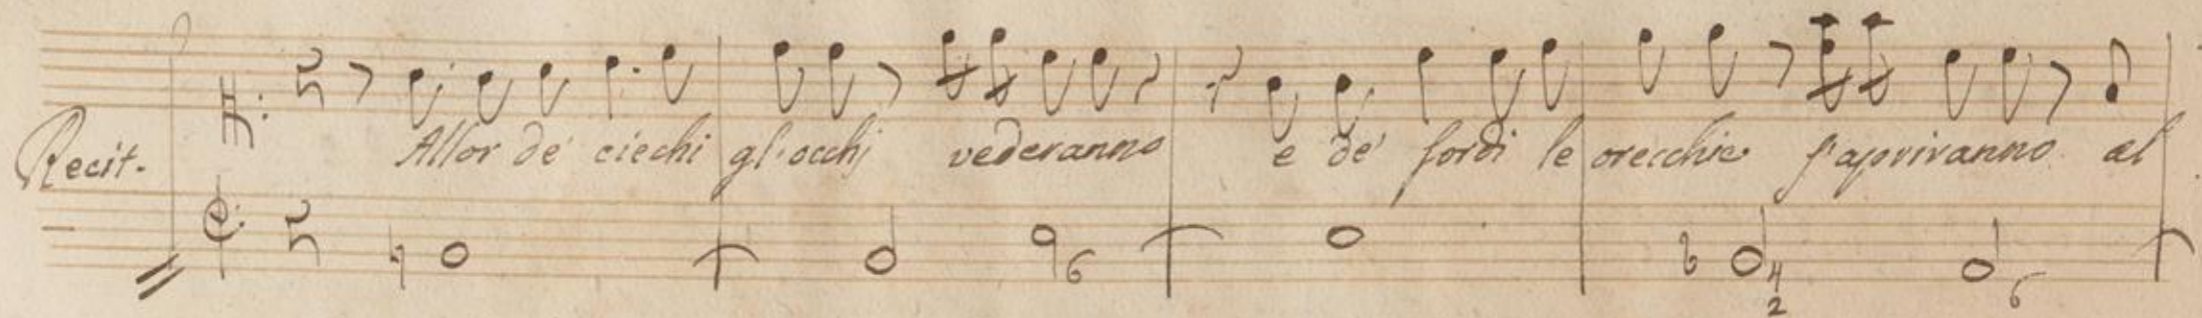 Recit. Allor de' ciechi gl'occhj vederanno e de' sordi le orecchie s'apriranno al
6 4 2 6